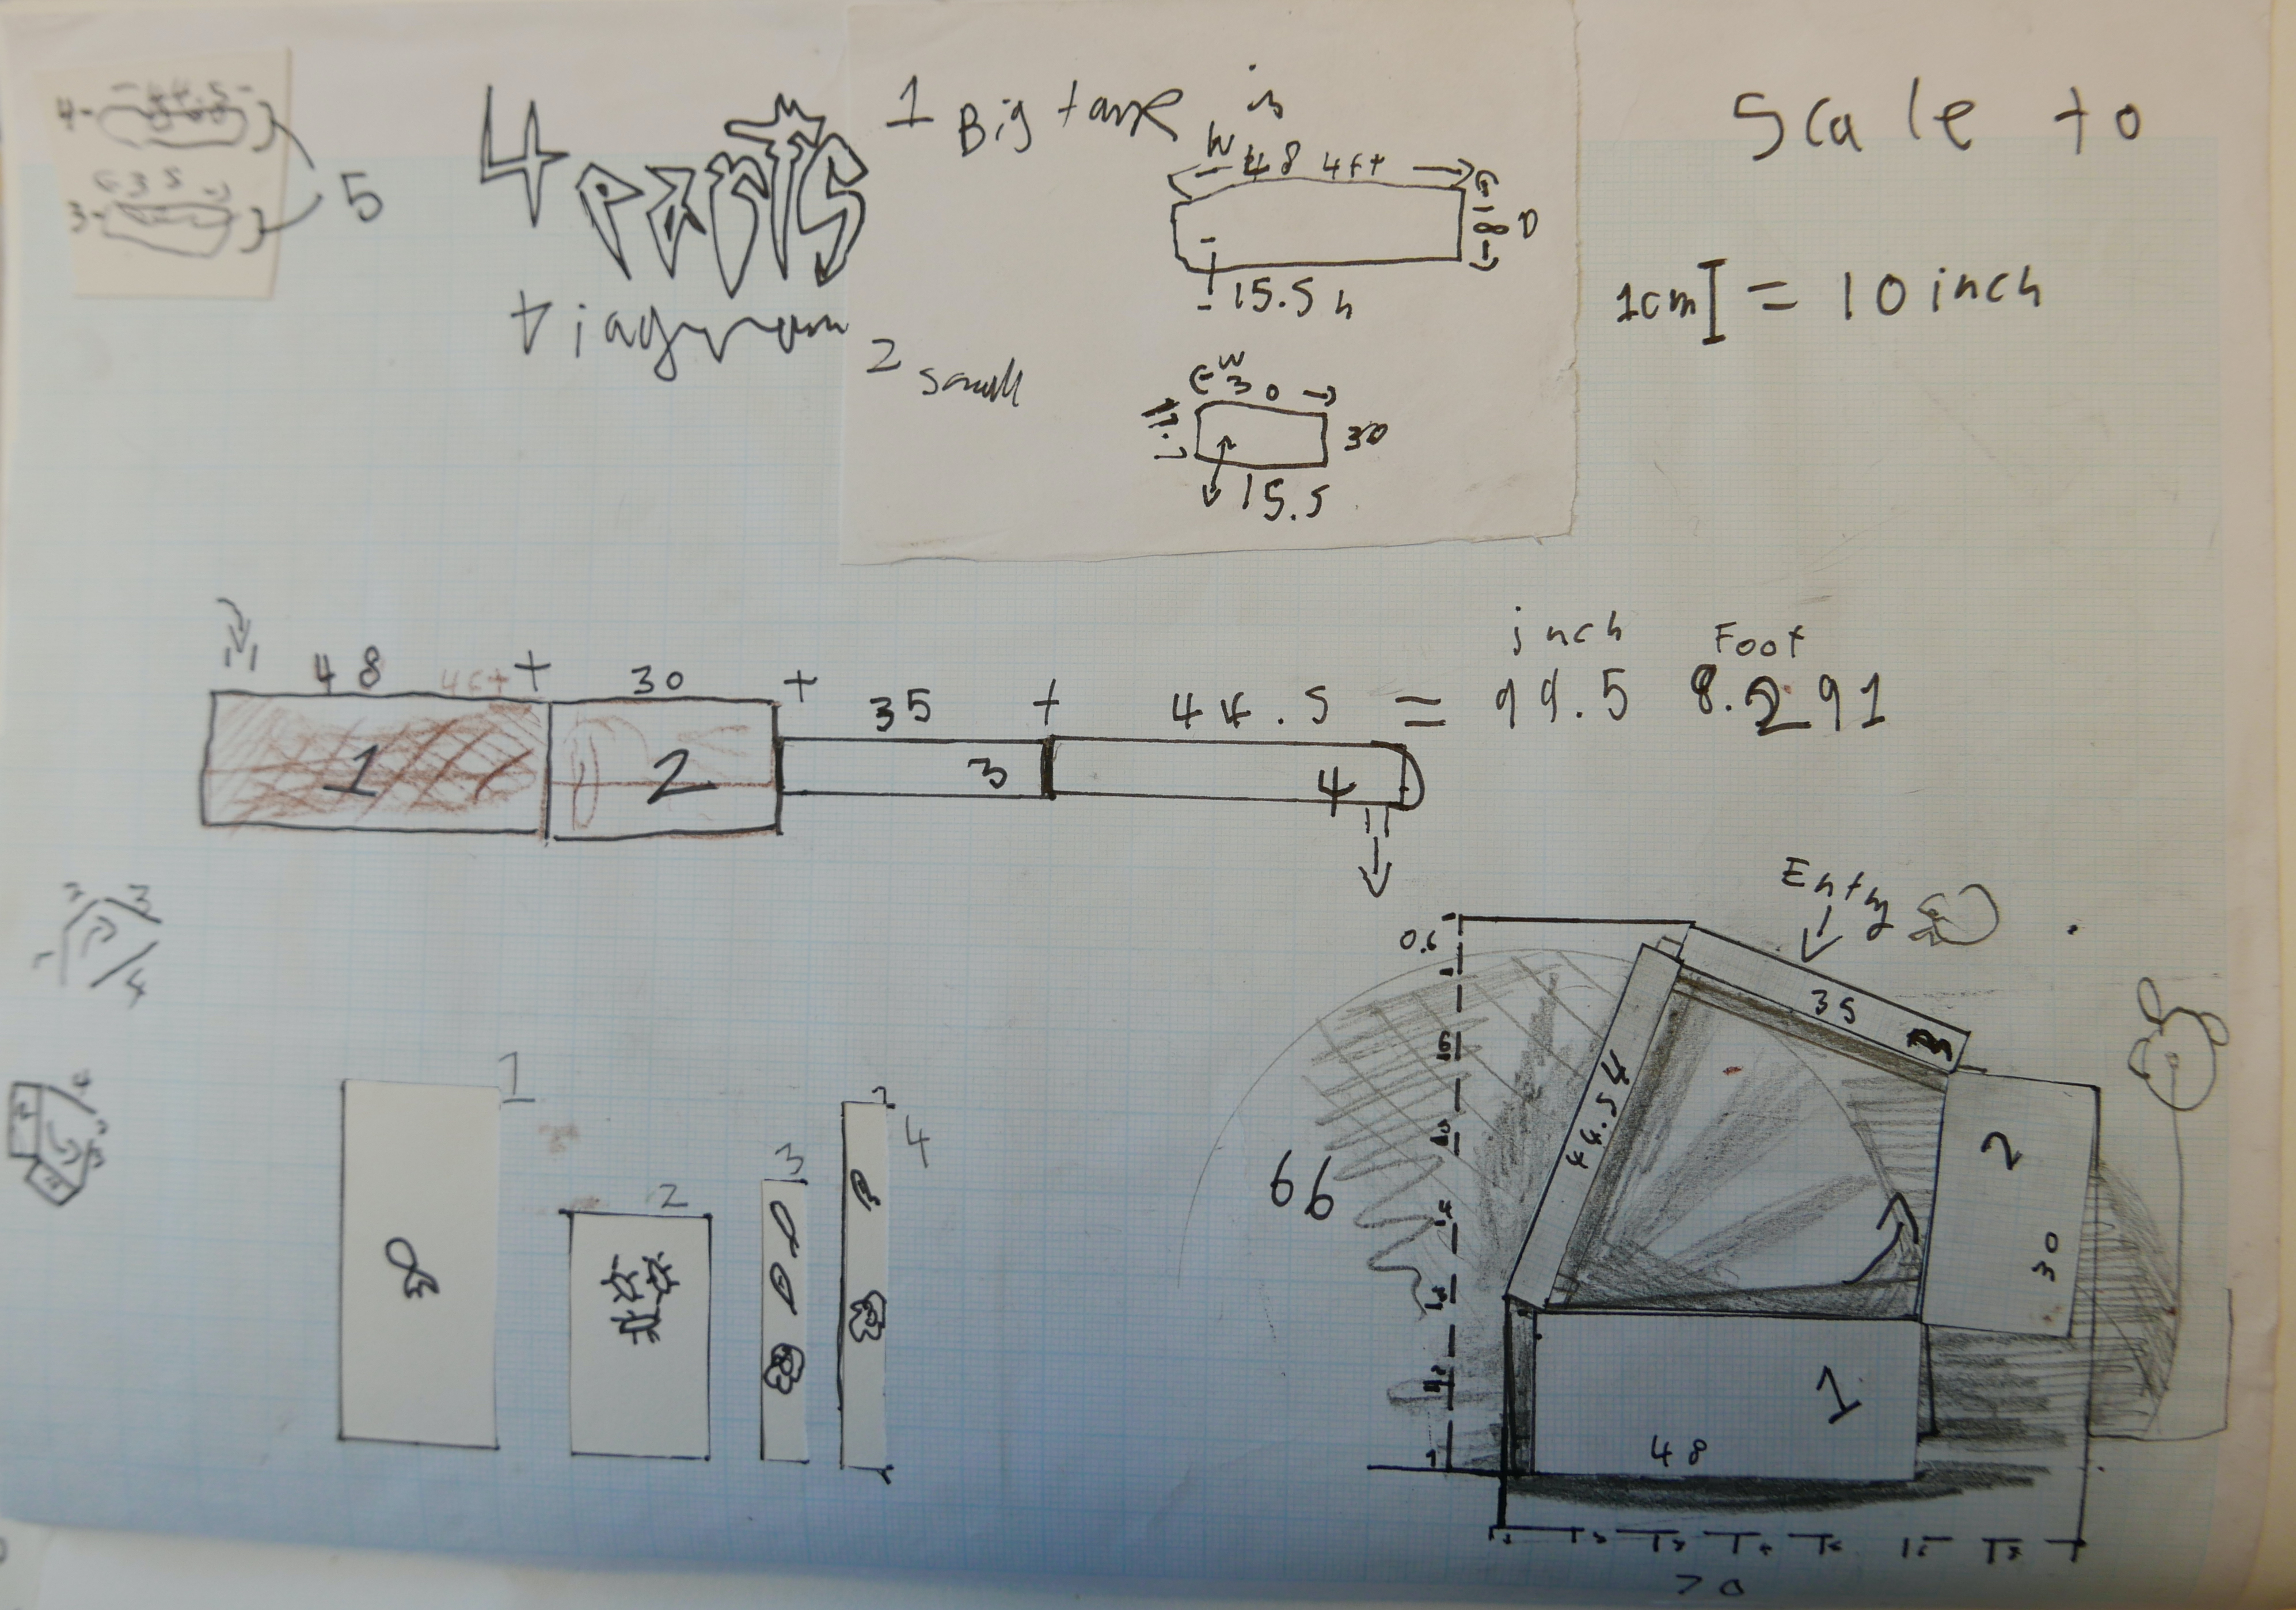 4 - 44.5 -
35
3 -
5
4 parts
diagram
1 Big tank is
W
48 4ft
18 D
15.5 h
2 small
W
30
30
15.5
Scale to
1cm = 10 inch
inch Foot
48 4ft + 30 + 35 + 44.5 = 99.5 8.291
1 2 3 4
2 3
1 4
1
2
3
4
Entry
0.6
35
3
44.5 4
66
2
30
1
48
70